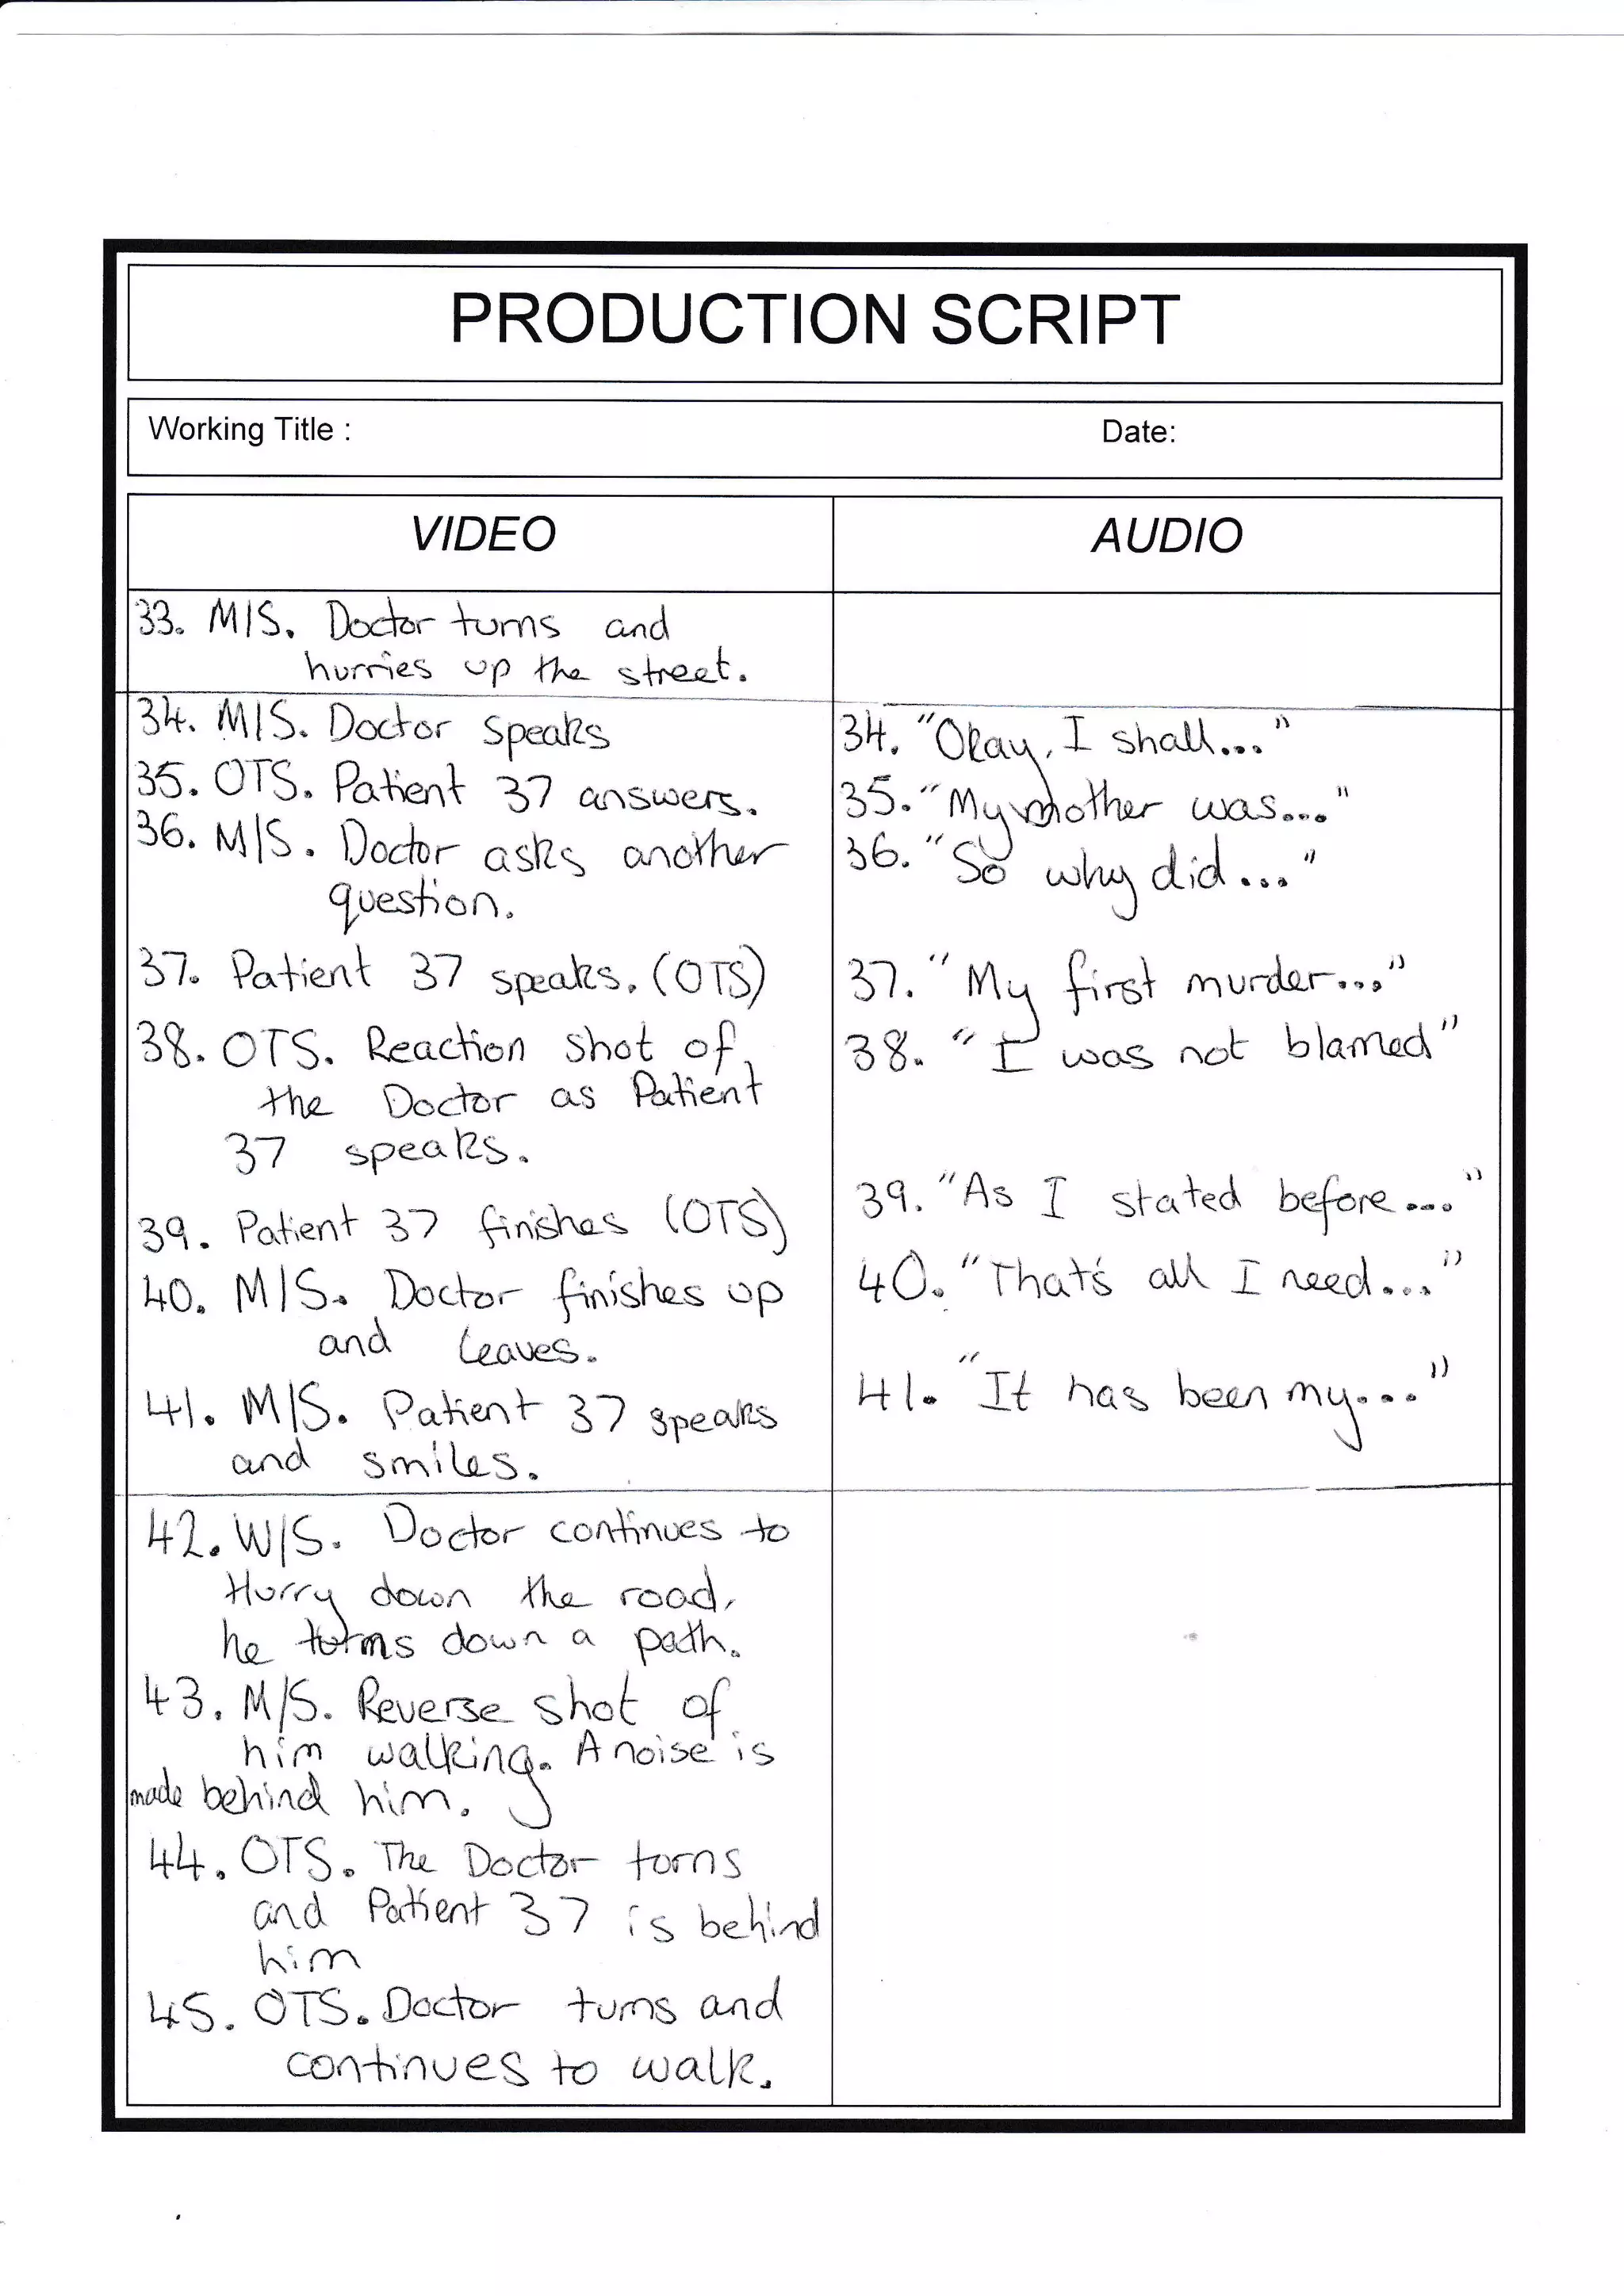 PRODUCTION SCRIPT
Working Title :
Date:
VIDEO
AUDIO
33. M/S. Doctor turns and
hurries up the street.
34. M/S. Doctor speaks
35. OTS. Patient 37 answers.
36. M/S. Doctor asks another
question.
37. Patient 37 speaks. (OTS)
38. OTS. Reaction shot of
the Doctor as Patient
37 speaks.
39. Patient 37 finishes (OTS)
40. M/S. Doctor finishes up
and leaves.
41. M/S. Patient 37 speaks
and smiles.
34. "Okay, I shall..."
35. "My mother was...."
36. "So why did ..."
37. "My first murder...."
38. "I was not blamed"
39. "As I stated before ...."
40. "That's all I need...."
41. "It has been my...."
42. W/S. Doctor continues to
Hurry down the road,
he turns down a path.
43. M/S. Reverse shot of
him walking. A noise is
made behind him.
44. OTS. The Doctor turns
and Patient 37 is behind
him
45. OTS. Doctor turns and
continues to walk.